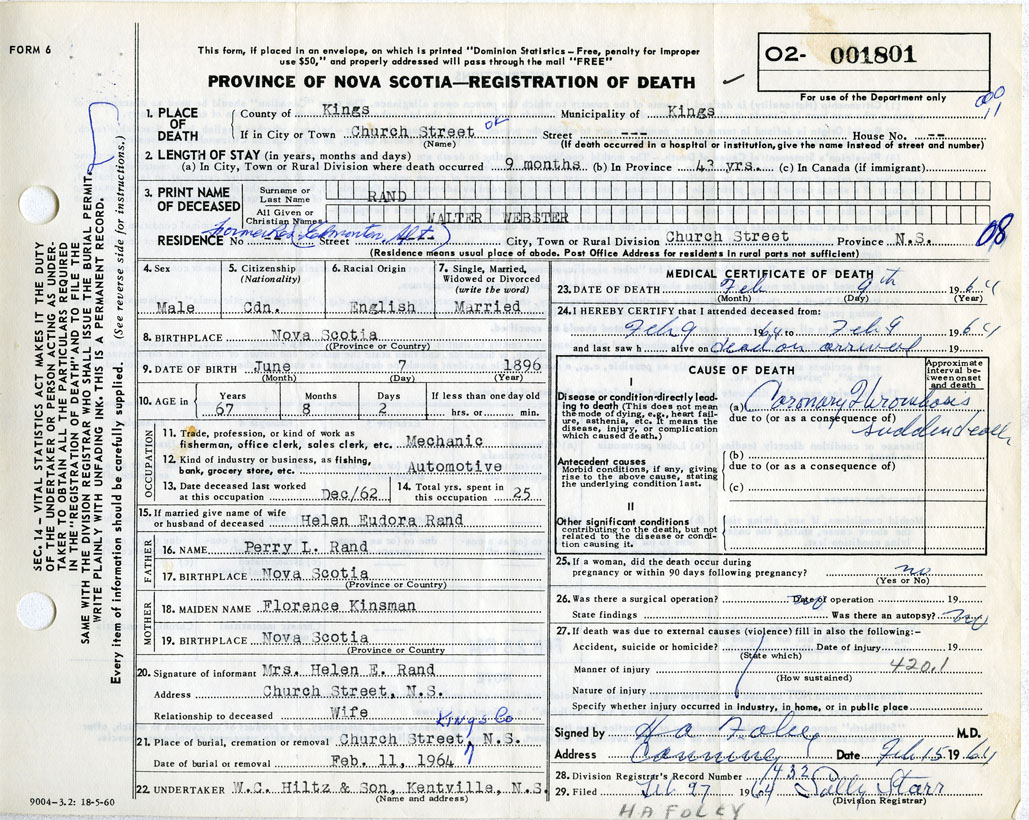 FORM 6
This form, if placed in an envelope, on which is printed "Dominion Statistics – Free, penalty for improper
use $50," and properly addressed will pass through the mail "FREE"
PROVINCE OF NOVA SCOTIA—REGISTRATION OF DEATH
O2- 001801
For use of the Department only
SEC. 14 – VITAL STATISTICS ACT MAKES IT THE DUTY
OF THE UNDERTAKER OR PERSON ACTING AS UNDER-
TAKER TO OBTAIN ALL THE PARTICULARS REQUIRED
IN THE "REGISTRATION OF DEATH" AND TO FILE THE
SAME WITH THE DIVISION REGISTRAR WHO SHALL ISSUE THE BURIAL PERMIT.
WRITE PLAINLY WITH UNFADING INK. THIS IS A PERMANENT RECORD.
Every item of information should be carefully supplied. (See reverse side for instructions.)
1. PLACE OF DEATH County of Kings Municipality of Kings
If in City or Town Church Street Street --- House No. --
(Name) (If death occurred in a hospital or institution, give the name instead of street and number)
2. LENGTH OF STAY (in years, months and days)
(a) In City, Town or Rural Division where death occurred 9 months (b) In Province 43 yrs. (c) In Canada (if immigrant)
3. PRINT NAME OF DECEASED Surname or Last Name RAND
All Given or Christian Names WALTER WEBSTER
RESIDENCE No Street City, Town or Rural Division Church Street Province N.S. 08
(Residence means usual place of abode. Post Office Address for residents in rural parts not sufficient)
4. Sex Male
5. Citizenship (Nationality) Cdn.
6. Racial Origin English
7. Single, Married, Widowed or Divorced (write the word) Married
8. BIRTHPLACE Nova Scotia
(Province or Country)
9. DATE OF BIRTH June 7 1896
(Month) (Day) (Year)
10. AGE in Years 67 Months 8 Days 2 If less than one day old hrs. or min.
OCCUPATION
11. Trade, profession, or kind of work as
fisherman, office clerk, sales clerk, etc. Mechanic
12. Kind of industry or business, as fishing,
bank, grocery store, etc. Automotive
13. Date deceased last worked at this occupation Dec/62
14. Total yrs. spent in this occupation 25
15. If married give name of wife
or husband of deceased Helen Eudora Rand
FATHER
16. NAME Perry L. Rand
17. BIRTHPLACE Nova Scotia
(Province or Country)
MOTHER
18. MAIDEN NAME Florence Kinsman
19. BIRTHPLACE Nova Scotia
(Province or Country
20. Signature of informant Mrs. Helen E. Rand
Address Church Street, N.S.
Relationship to deceased Wife
Kings Co
21. Place of burial, cremation or removal Church Street, N.S.
Date of burial or removal Feb. 11, 1964
22. UNDERTAKER W.C. Hiltz & Son, Kentville, N.S.
(Name and address)
9004–3.2: 18-5-60
MEDICAL CERTIFICATE OF DEATH
23. DATE OF DEATH Feb 9th 1964
(Month) (Day) (Year)
24. I HEREBY CERTIFY that I attended deceased from:
Feb 9 1964 to Feb 9 1964
and last saw h alive on dead on arrival 19
CAUSE OF DEATH
Approximate interval between onset and death
I
Disease or condition directly lead-
ing to death (This does not mean
the mode of dying, e.g., heart fail-
ure, asthenia, etc. It means the
disease, injury, or complication
which caused death.)
(a) Coronary Thrombosis
due to (or as a consequence of)
Antecedent causes
Morbid conditions, if any, giving
rise to the above cause, stating
the underlying condition last.
(b)
due to (or as a consequence of)
(c)
II
Other significant conditions
contributing to the death, but not
related to the disease or condi-
tion causing it.
25. If a woman, did the death occur during
pregnancy or within 90 days following pregnancy? no
(Yes or No)
26. Was there a surgical operation? no Date of operation 19
State findings Was there an autopsy? no
27. If death was due to external causes (violence) fill in also the following:–
Accident, suicide or homicide? Date of injury 19
(State which)
Manner of injury 420.1
(How sustained)
Nature of injury
Specify whether injury occurred in industry, in home, or in public place
Signed by H a Foley M.D.
Address Canning Date Feb 15 1964
28. Division Registrar's Record Number 1432
29. Filed Feb 27 1964 Sally Starr
(Division Registrar)
H A FOLEY